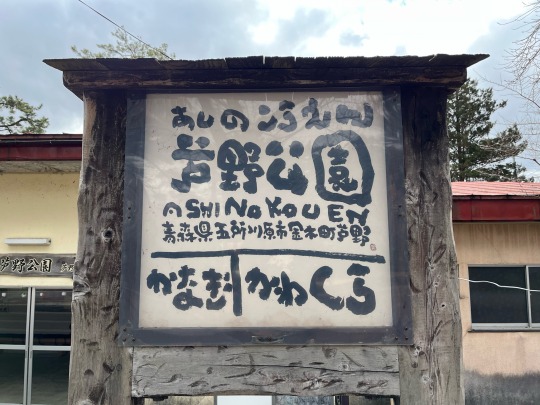 あしのこうえん
芦野公園
ASHINOKOUEN
青森県五所川原市金木町芦野
かなぎ かわくら
芦野公園